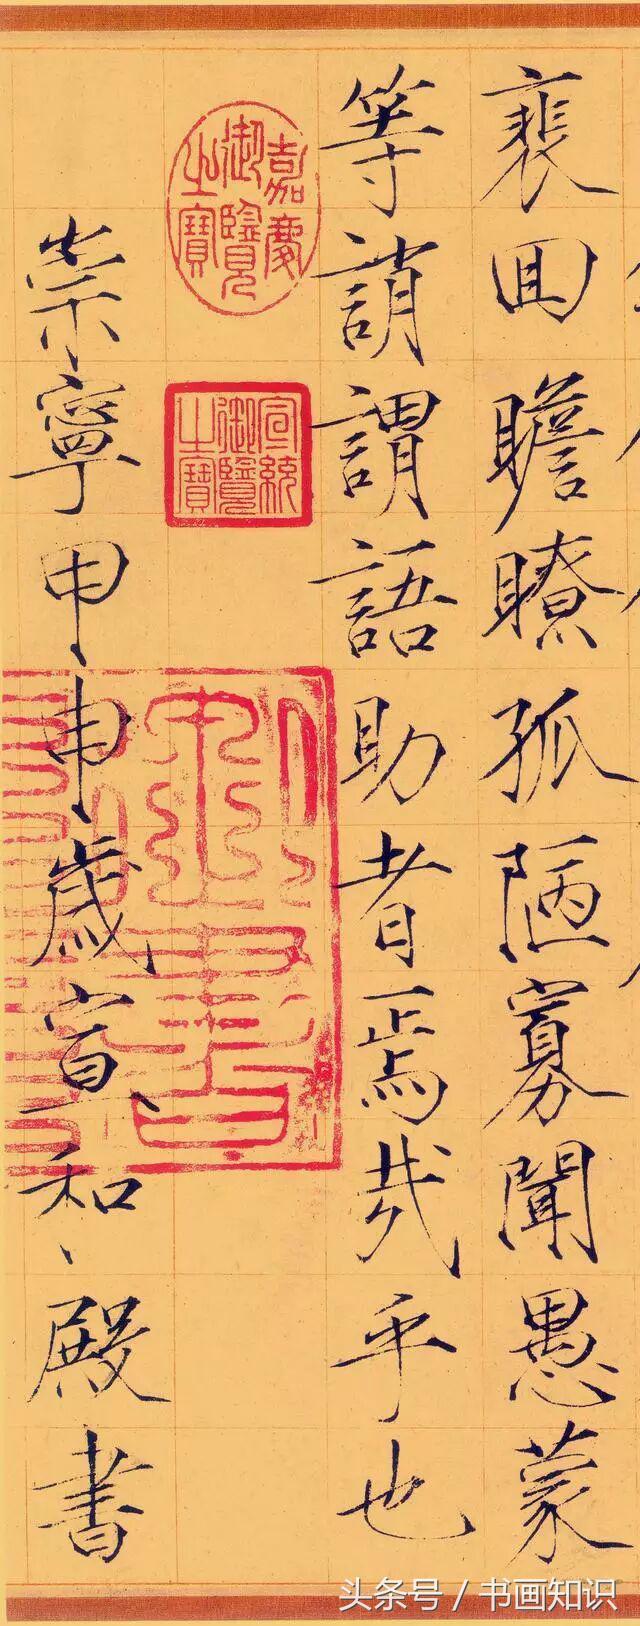 裵回瞻瞭孤陋寡聞愚蒙
等誚謂語助者焉哉乎也
嘉慶御覽之寶
宣統御覽之寶
崇寧甲申歲宣和殿書
头条号 / 书画知识